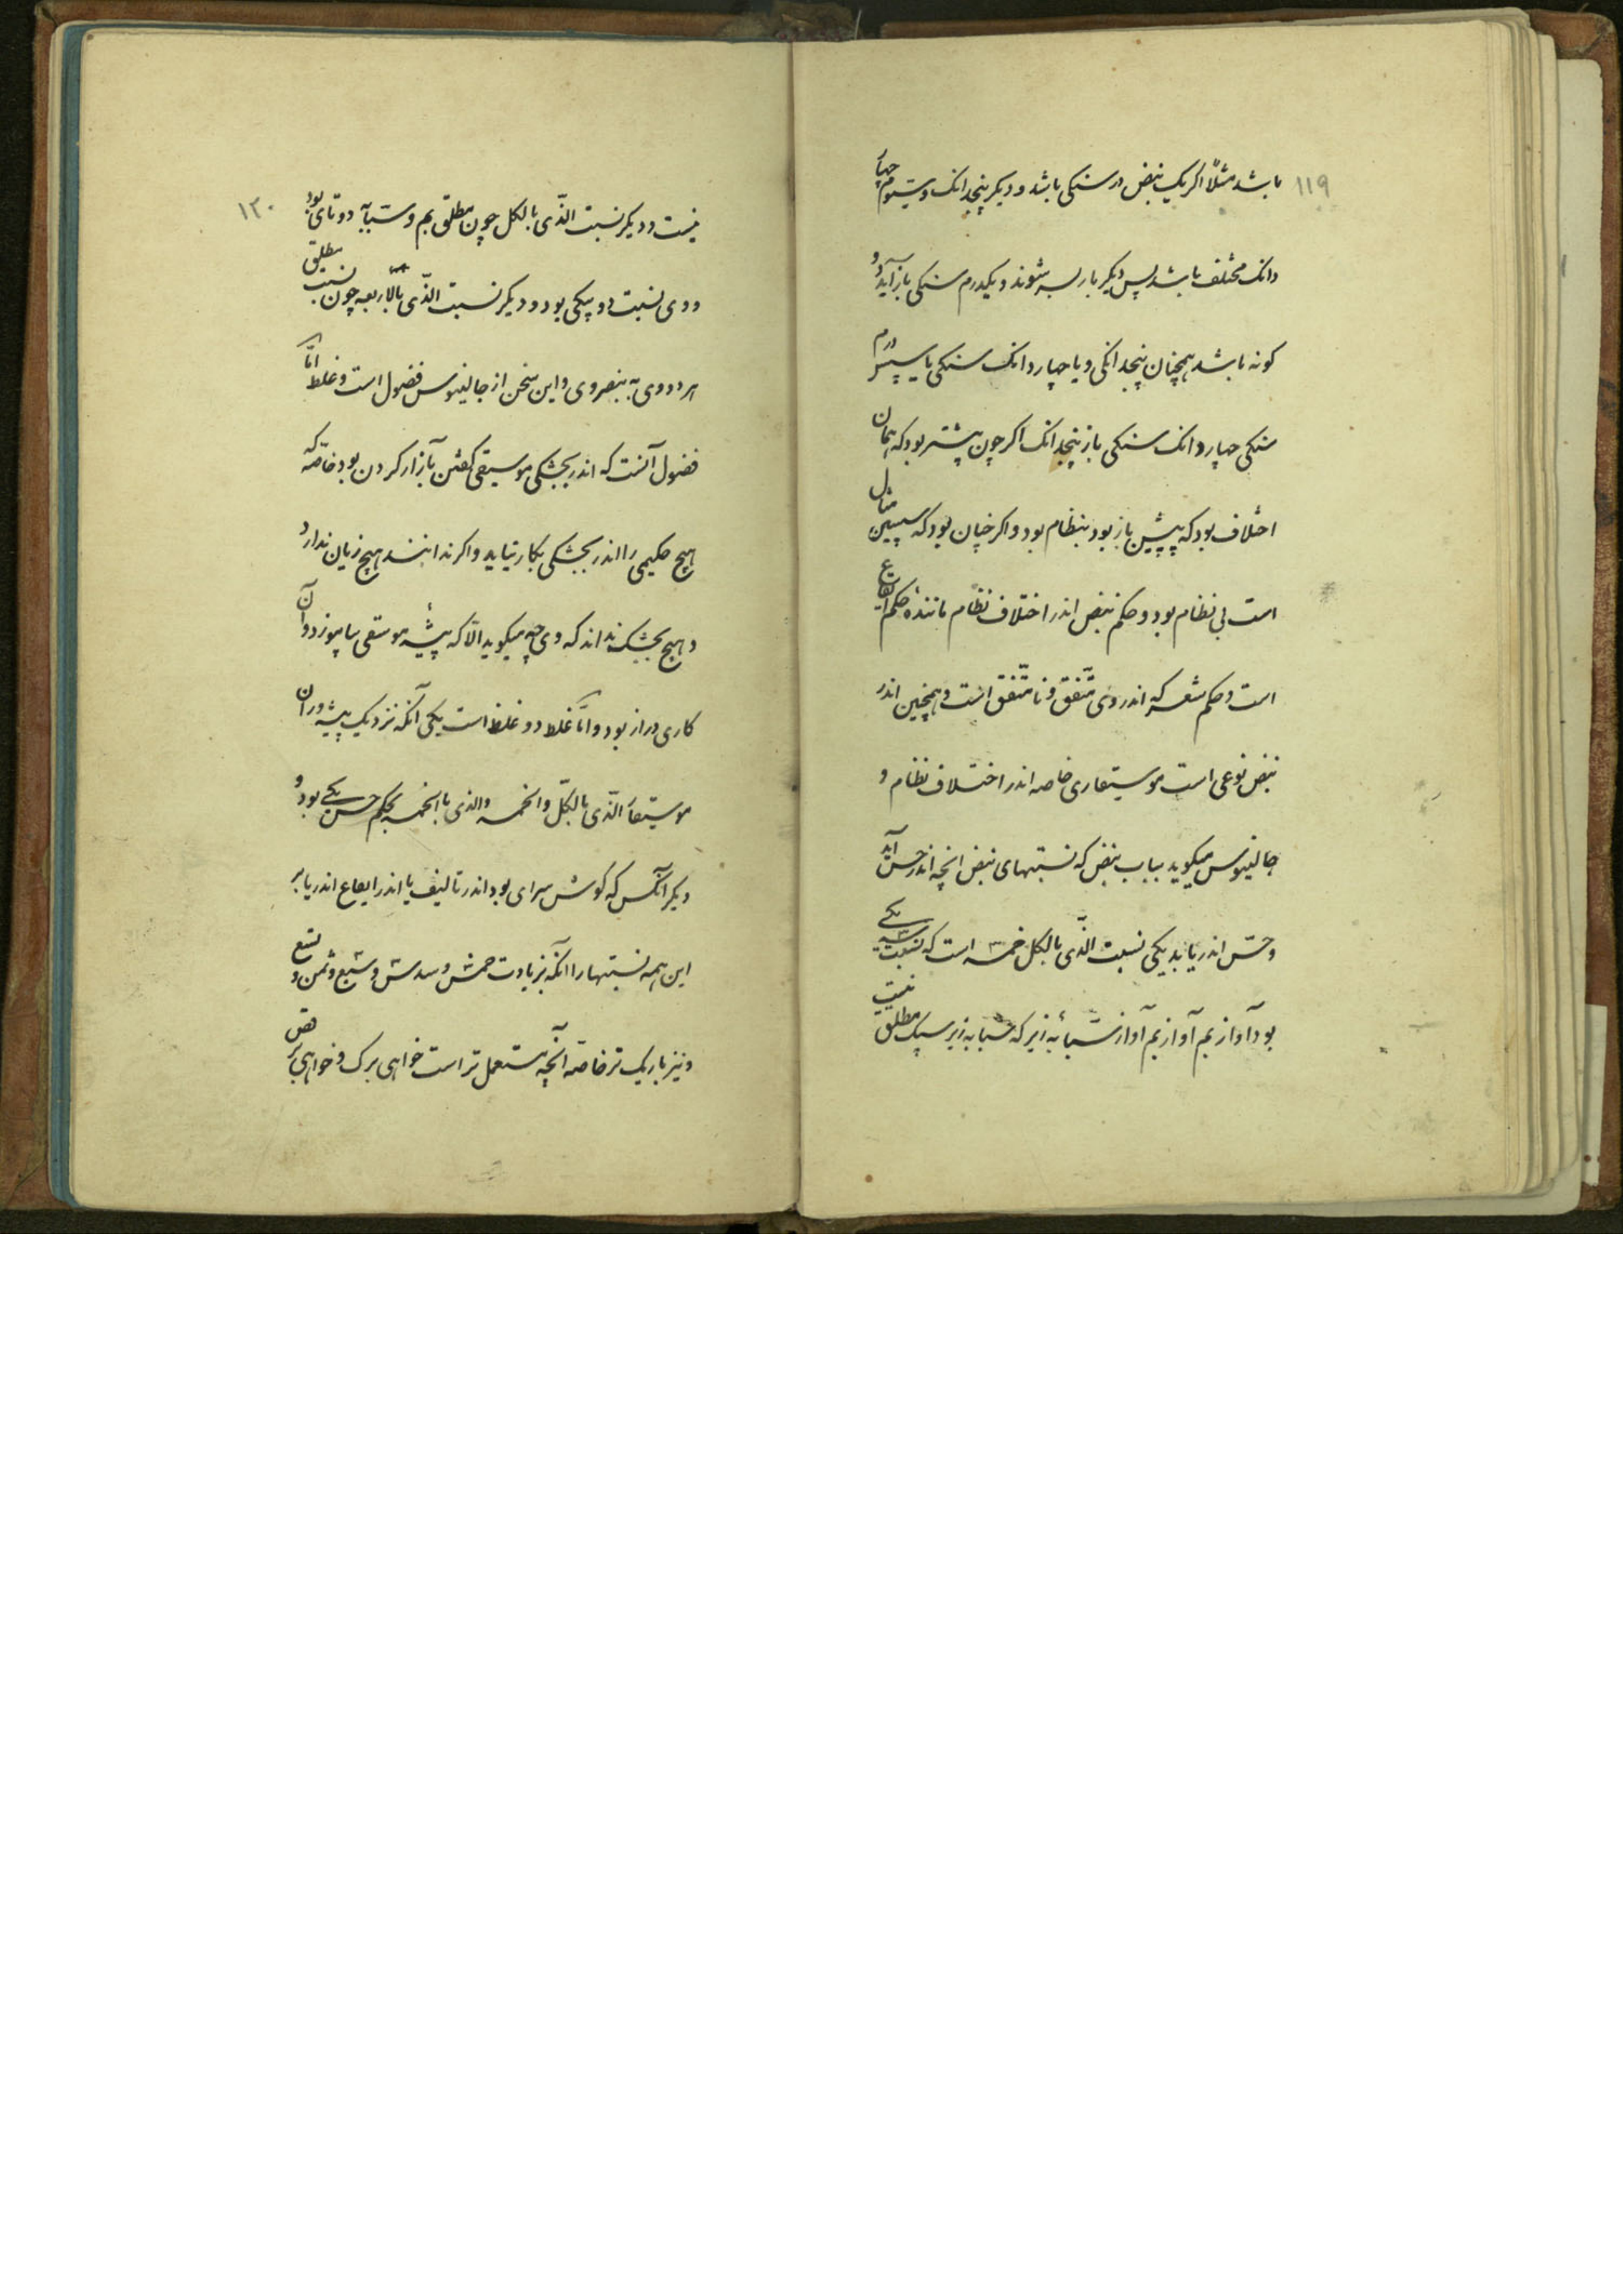 ۱۱۹
باشد مثلاً اکر یک نبض درسنکی باشد و دیکر پنجدانک و سیّوم چهار
دانک مختلف باشد پس دیکر بار بسر شوند و یکدرم سنکی باز آید و
کونه باشد همچنان پنجدانکی و یا چهاردانک سنکی یا سپس درم
سنکی چهاردانک سنکی باز پنجدانک اکر چون پیشتر بود که همان
اختلاف بود که پیشین باز بود بنظام بود و اکر چنان بود که سپسین مثال
است بی نظام بود و حکم نبض اندر اختلاف نظام ماننده حکم ایقاع
است و حکم شعر که اندر وی متّفق و نا متّفق است و همچنین اندر
نبض نوعی است موسیقاری خاصه اندر اختلاف نظام و
جالینوس میکوید بباب نبض که نسبتهای نبض انچه اندر حس آید
و حسّ اندر یابد یکی نسبت الّذی بالکل خمسه است که نسبت سه یکی
بود آواز بم آواز بم آواز سبّابه زیر که سبابه زیر سبک مطلق نیست
۱۲۰
نیست و دیکر نسبت الّذی بالکل چون مطلق بم و سبّابه دوتای بود
و وی نسبت دو بیکی بود و دیکر نسبت الّذی بالاربعه چون نسبت مطلق
هر دوی به بنصر وی و این سخن از جالینوس فضول است و غلط امّا
فضول آنست که اندر بجشکی موسیقی کفتن بازار کردن بود خاصّه که
هیچ حکیمی را اندر بجشکی بکار نیاید و اکر ندانند هیچ زیان ندارد
و هیچ بجشک نداند که وی چه میکوید الّا که پیشه موسقی بیاموزد و آن
کاری دراز بود و امّا غلط دو غلط است یکی آنکه نزدیک پیشه وران
موسیقا الّذی بالکل والخمسه والذی بالخمسه بحکم حس یکی بود و
دیکر آنکس که کوش سرای بود اندر تالیف یا اندر ایقاع اندر یابد
این همه نسبتها را انکه بزیادت خمس و سدس و سبع و ثمن و تسع
و نیز باریک تر خاصّه آنچه مستعمل تر است خواهی برک و خواهی بر قص